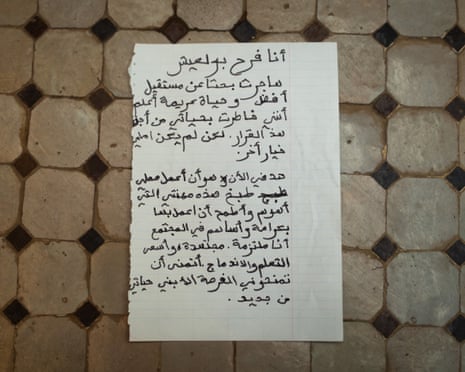 أنا فرح بولعيش
هاجرت بحثا عن مستقبل
أفضل وحياة كريمة أعلم
أنني خاطرت بحياتي من أجل
هذ القرار. لكن لم يكن امامي
خيار أخر.
هدفي الأن وهو أن أعمل معلمة
طبخ هذه مهنتي التي
أطمح أن اعمل بها
بكرامة وأساهم في المجتمع
أنا ملتزمة. مجتهدة وأسعى
التعلم والاندماج. أتمنى أن
تمنحوني الفرصة لأبني حياتي
من جديد.